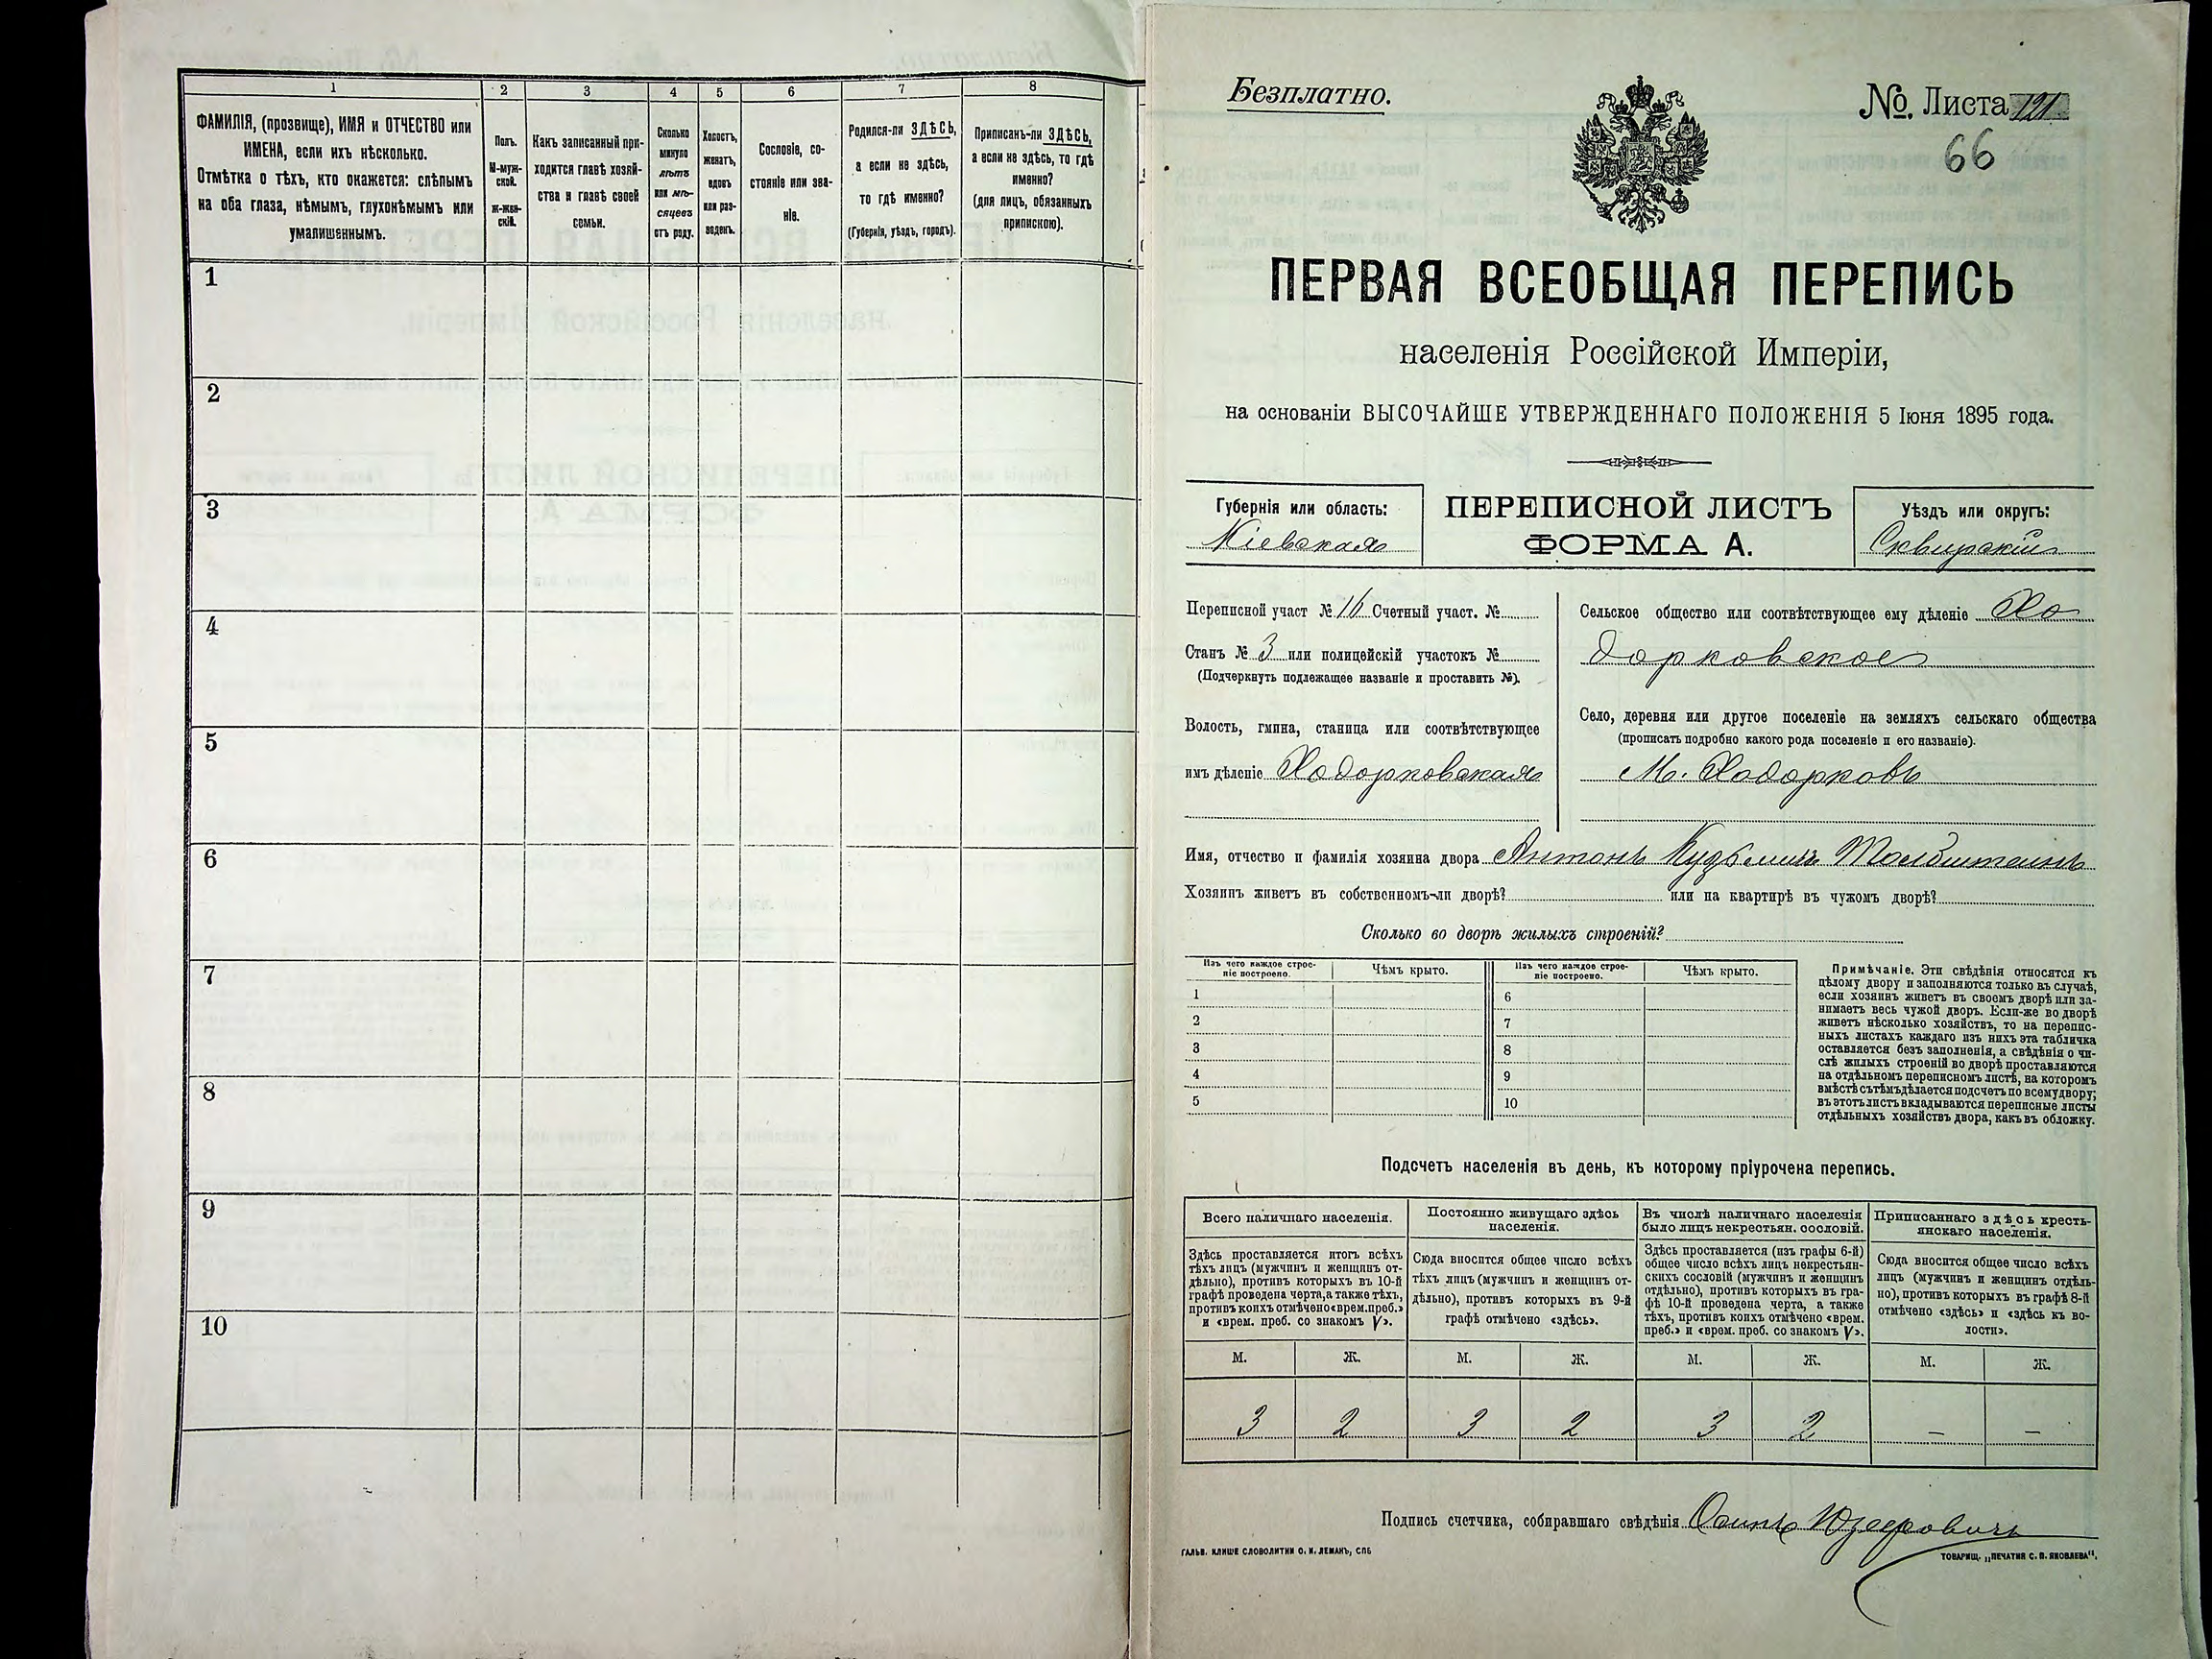 1
2
3
4
5
6
7
8
ФАМИЛІЯ, (прозвище), ИМЯ и ОТЧЕСТВО или
ИМЕНА, если ихъ нѣсколько.
Отмѣтка о тѣхъ, кто окажется: слѣпымъ
на оба глаза, нѣмымъ, глухонѣмымъ или
умалишеннымъ.
Полъ.
М-муж-
ской.
ж-жен-
скій.
Какъ записанный при-
ходится главѣ хозяй-
ства и главѣ своей
семьи.
Сколько
минуло
лѣтъ
или мѣ-
сяцевъ
отъ роду.
Холостъ,
женатъ,
вдовъ
или раз-
веденъ.
Сословіе, со-
стояніе или зва-
ніе.
Родился-ли ЗДѢСЬ,
а если не здѣсь,
то гдѣ именно?
(Губернія, уѣздъ, городъ).
Приписанъ-ли ЗДѢСЬ,
а если не здѣсь, то гдѣ
именно?
(для лицъ, обязанныхъ
припискою).
1
2
3
4
5
6
7
8
9
10
Безплатно.
№ Листа 121
66
ПЕРВАЯ ВСЕОБЩАЯ ПЕРЕПИСЬ
населенія Россійской Имперіи,
на основаніи ВЫСОЧАЙШЕ УТВЕРЖДЕННАГО ПОЛОЖЕНІЯ 5 Іюня 1895 года.
Губернія или область:
Кіевская
ПЕРЕПИСНОЙ ЛИСТЪ
ФОРМА А.
Уѣздъ или округъ:
Сквирскій
Переписной участ № 16 Счетный участ. №
Станъ № 3 или полицейскій участокъ №
(Подчеркнуть подлежащее названіе и проставить №).
Волость, гмина, станица или соотвѣтствующее
имъ дѣленіе Ходорковская
Сельское общество или соотвѣтствующее ему дѣленіе Хо
дорковское
Село, деревня или другое поселеніе на земляхъ сельскаго общества
(прописать подробно какого рода поселеніе и его названіе).
М. Ходорковъ
Имя, отчество и фамилія хозяина двора Антонъ Кузьмичъ
Хозяинъ живетъ въ собственномъ-ли дворѣ? или на квартирѣ въ чужомъ дворѣ?
Сколько во дворѣ жилыхъ строеній?
Изъ чего каждое строе-
ніе построено.
Чѣмъ крыто.
Изъ чего каждое строе-
ніе построено.
Чѣмъ крыто.
1
2
3
4
5
6
7
8
9
10
Примѣчаніе. Эти свѣдѣнія относятся къ
цѣлому двору и заполняются только въ случаѣ,
если хозяинъ живетъ въ своемъ дворѣ или за-
нимаетъ весь чужой дворъ. Если-же во дворѣ
живетъ нѣсколько хозяйствъ, то на перепис-
ныхъ листахъ каждаго изъ нихъ эта табличка
оставляется безъ заполненія, а свѣдѣнія о чи-
слѣ жилыхъ строеній во дворѣ проставляются
на отдѣльномъ переписномъ листѣ, на которомъ
вмѣстѣ съ тѣмъ дѣлается подсчетъ по всему двору;
въ этотъ листъ вкладываются переписные листы
отдѣльныхъ хозяйствъ двора, какъ въ обложку.
Подсчетъ населенія въ день, къ которому пріурочена перепись.
Всего наличнаго населенія.
Постоянно живущаго здѣсь
населенія.
Въ числѣ наличнаго населенія
было лицъ некрестьян. сословій.
Приписаннаго здѣсь кресть-
янскаго населенія.
Здѣсь проставляется итогъ всѣхъ
тѣхъ лицъ (мужчинъ и женщинъ от-
дѣльно), противъ которыхъ въ 10-й
графѣ проведена черта, а также тѣхъ,
противъ коихъ отмѣчено «врем. преб.»
и «врем. преб. со знакомъ V».
Сюда вносится общее число всѣхъ
тѣхъ лицъ (мужчинъ и женщинъ от-
дѣльно), противъ которыхъ въ 9-й
графѣ отмѣчено «здѣсь».
Здѣсь проставляется (изъ графы 6-й)
общее число всѣхъ лицъ некрестьян-
скихъ сословій (мужчинъ и женщинъ
отдѣльно), противъ которыхъ въ гра-
фѣ 10-й проведена черта, а также
тѣхъ, противъ коихъ отмѣчено «врем.
преб.» и «врем. преб. со знакомъ V».
Сюда вносится общее число всѣхъ
лицъ (мужчинъ и женщинъ отдѣль-
но), противъ которыхъ въ графѣ 8-й
отмѣчено «здѣсь» и «здѣсь въ во-
лости».
М. Ж. М. Ж. М. Ж. М. Ж.
3 2 3 2 3 2 – –
Подпись счетчика, собиравшаго свѣдѣнія Осипъ Юзефовичъ
ГАЛЬВ. КЛИШЕ СЛОВОЛИТНИ О. И. ЛЕМАНЪ, СПБ
ТОВАРИЩ. „ПЕЧАТНЯ С. П. ЯКОВЛЕВА".